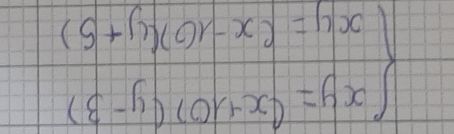 xy = (x+10)(y-3)
xy = (x-10)(y+5)